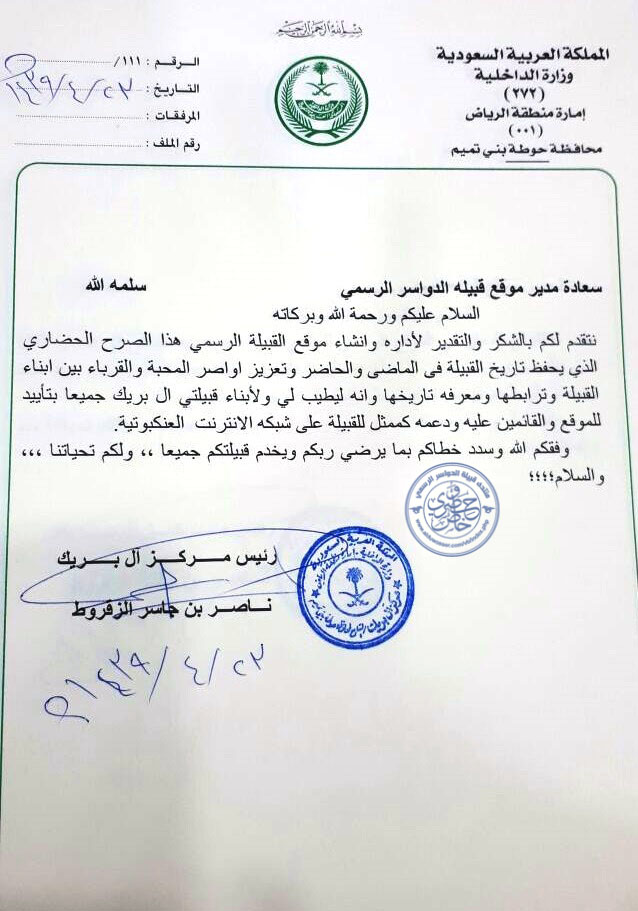 بسم الله الرحمن الرحيم
المملكة العربية السعودية
وزارة الداخلية
(٢٧٢)
إمارة منطقة الرياض
(٠٠١)
محافظة حوطة بني تميم
الـرقـم : ١١١/
التاريخ : ٢٣/٤/١٤٣٩هـ
المرفقات :
رقم الملف :
سعادة مدير موقع قبيله الدواسر الرسمي سلمه الله
السلام عليكم ورحمة الله وبركاته
نتقدم لكم بالشكر والتقدير لأداره وانشاء موقع القبيلة الرسمي هذا الصرح الحضاري
الذي يحفظ تاريخ القبيلة فى الماضى والحاضر وتعزيز اواصر المحبة والقرباء بين ابناء
القبيلة وترابطها ومعرفه تاريخها وانه ليطيب لي ولأبناء قبيلتي ال بريك جميعا بتأييد
للموقع والقائمين عليه ودعمه كممثل للقبيلة على شبكه الانترنت العنكبوتية.
وفقكم الله وسدد خطاكم بما يرضي ربكم ويخدم قبيلتكم جميعا ،، ولكم تحياتنا ،،،
والسلام؛؛؛؛
رئيس مـركـز آل بـريك
ناصر بن جاسر الزقروط
٢٣/٤/١٤٣٩هـ
المملكة العربية السعودية